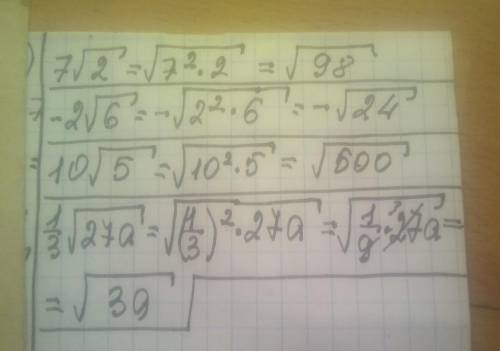 7√2 = √7²·2 = √98
-2√6 = -√2²·6 = -√24
10√5 = √10²·5 = √500
1/3√27a = √(1/3)²·27a = √1/9·27a =
= √3a